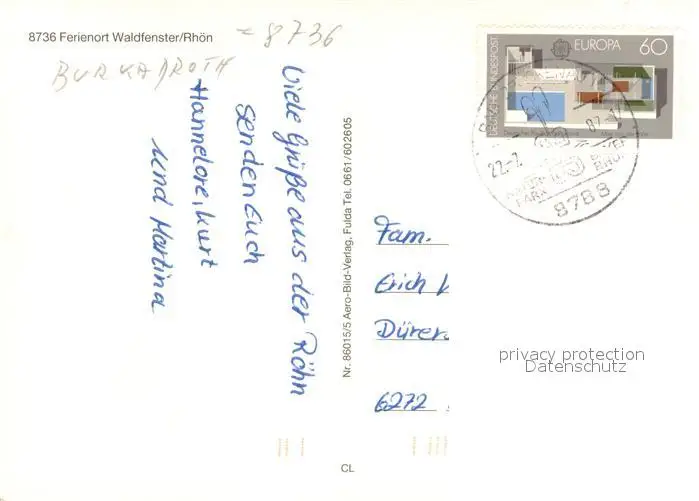 8736 Ferienort Waldfenster/Rhön
= 8736
BURKARDROTH
Viele Grüße aus der Röhn
senden Euch
Hannelore, Kurt
und Martina
Nr. 86015/5 Aero-Bild-Verlag, Fulda Tel. 0661/602605
CL
DEUTSCHE BUNDESPOST
EUROPA 60
22.-7.
87
NATUR
PARK
RHÖN
8788
Fam.
Erich
Dürer
6272
privacy protection
Datenschutz